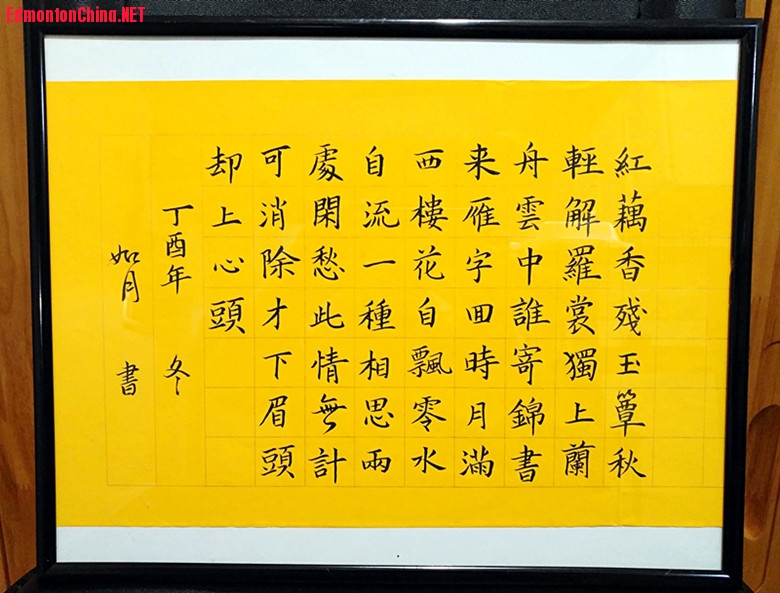 EdmontonChina.NET
紅藕香殘玉簟秋
輕解羅裳獨上蘭
舟雲中誰寄錦書
来雁字回時月滿
西樓花自飄零水
自流一種相思兩
處閑愁此情無計
可消除才下眉頭
却上心頭
丁酉年 冬
如月 書